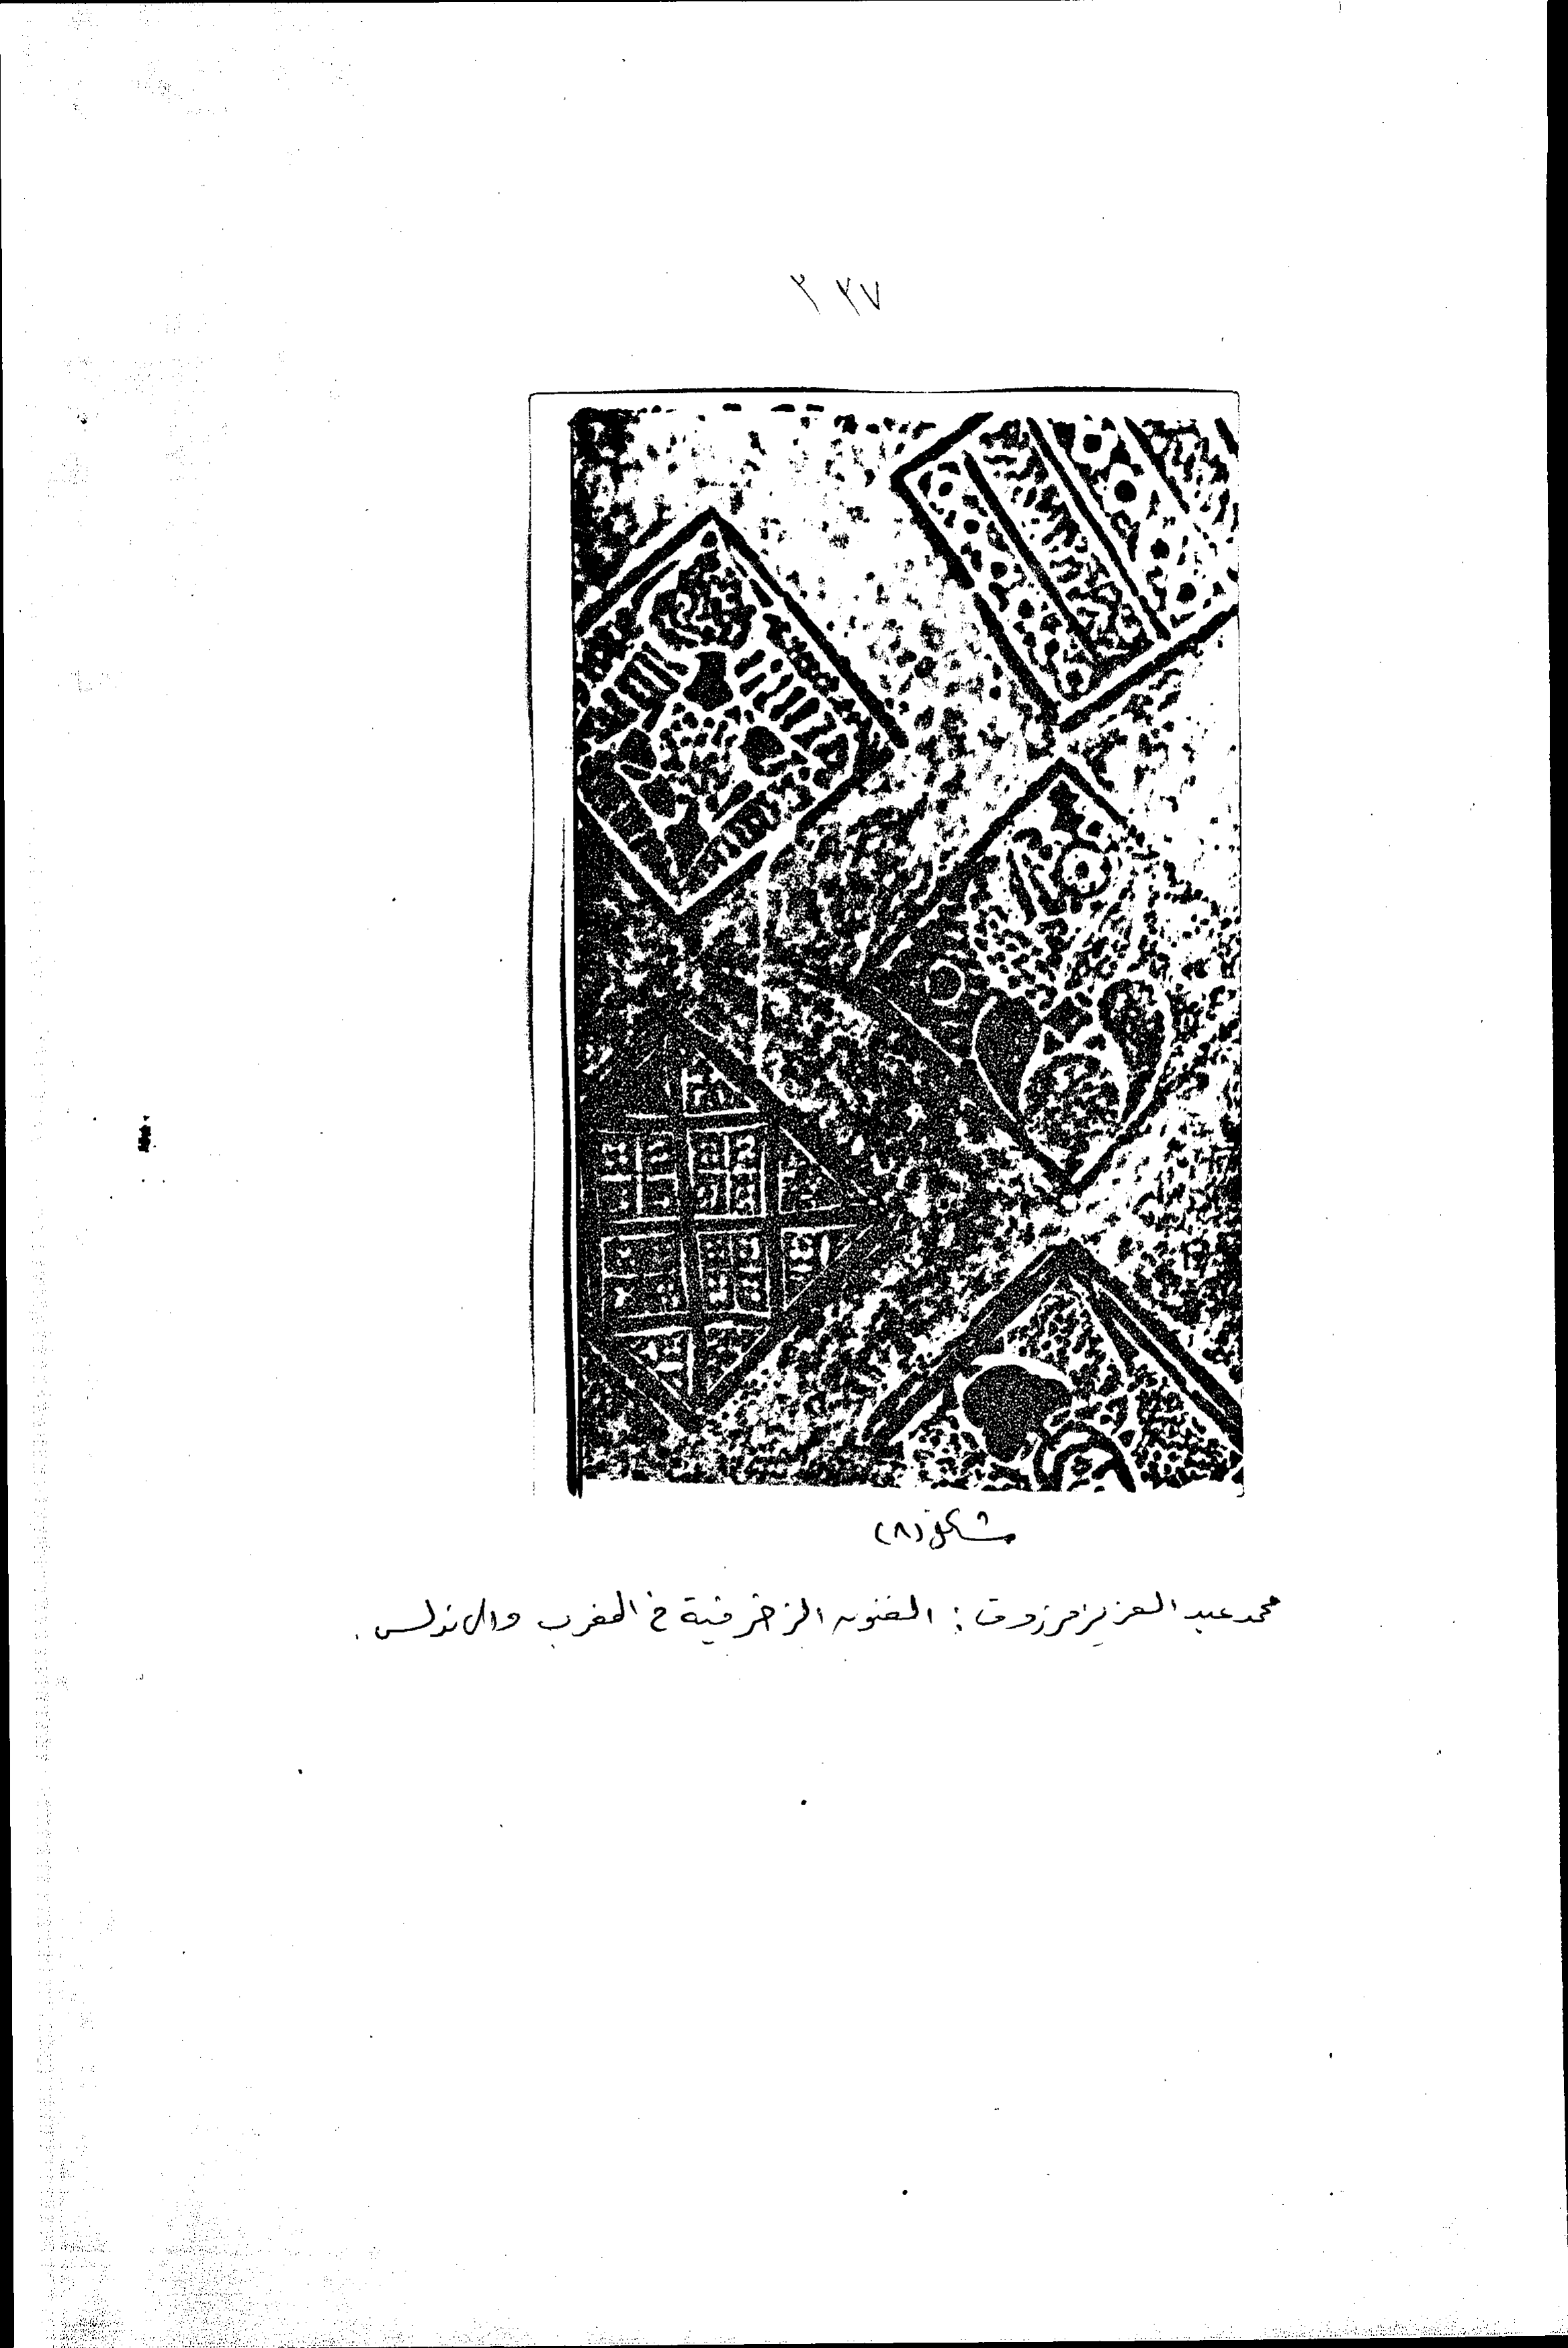 ٣٢٧
شكل (٨)
محمد عبد العزيز مرزوق : الفنون الزخرفية في المغرب والاندلس .